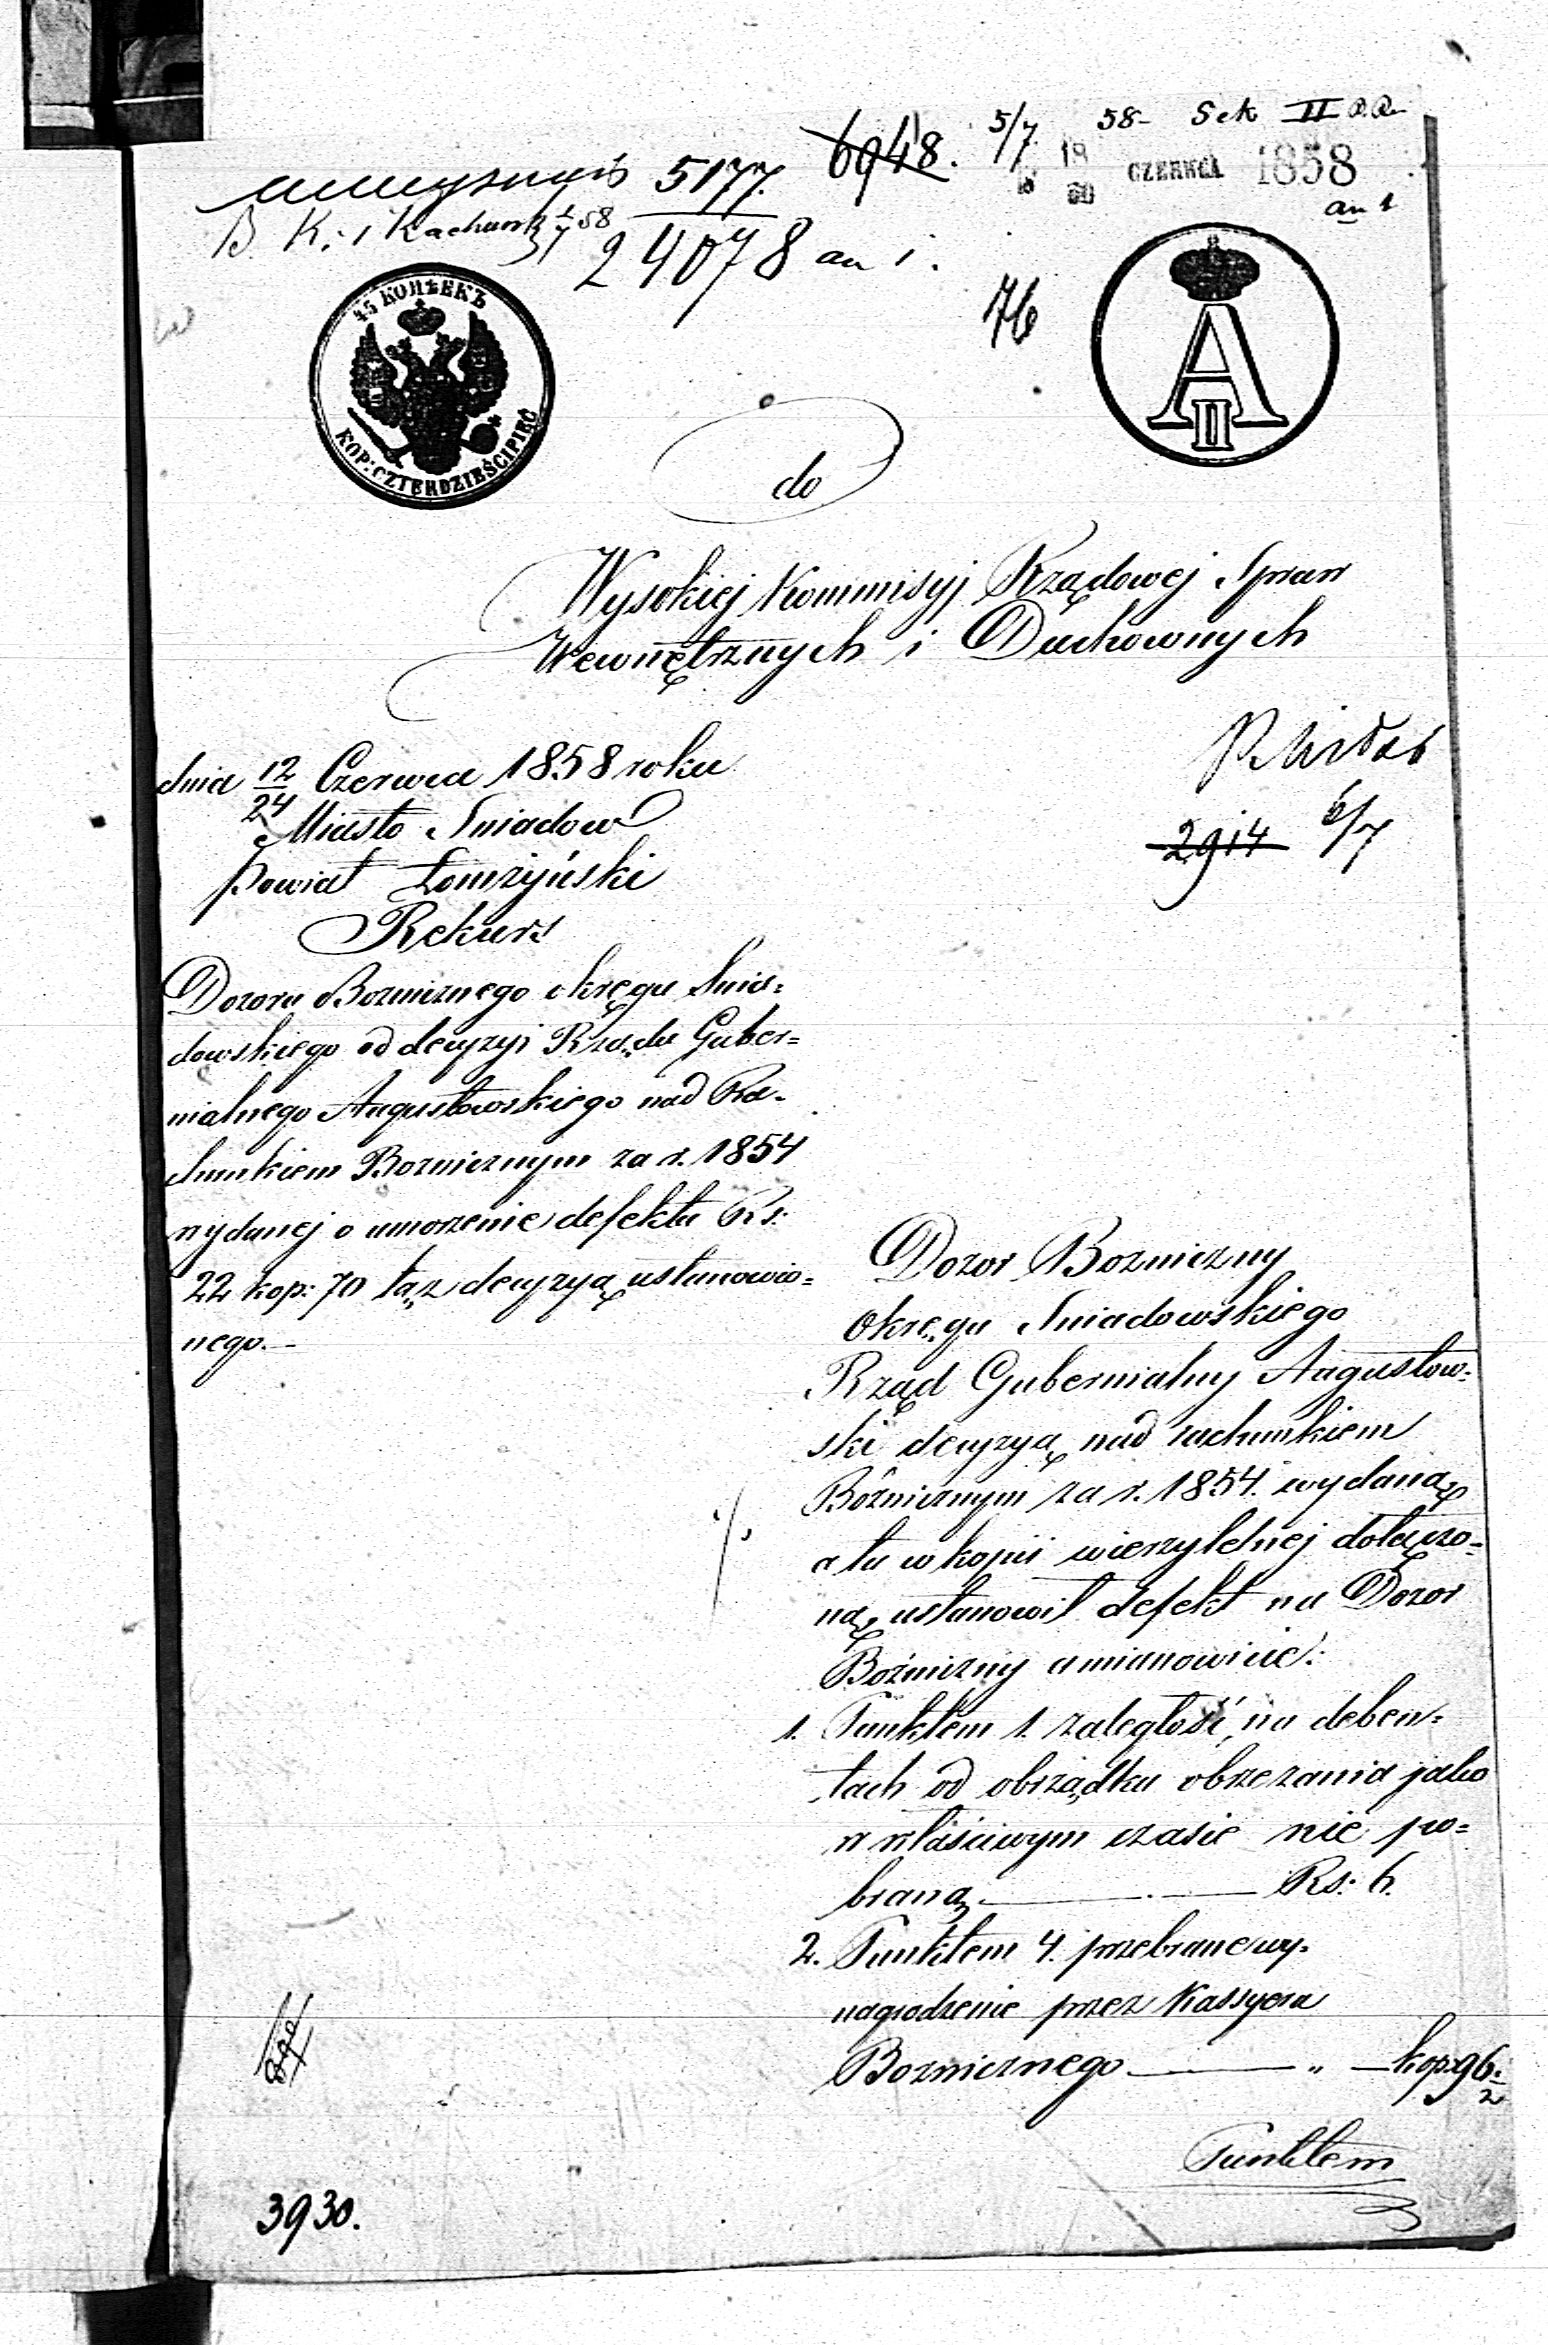 5/7 58- Sek II
6948.
5177.
18 CZERWCA 1858
30
an 1
B. K. i Rachun
24078 an 1.
76
45 КОПѢЕКЪ
KOP: CZTERDZIEŚCI PIĘĆ
A II
do
Wysokiej Kommisyj Rządowej Spraw
Wewnętrznych i Duchownych
dnia 12/24 Czerwca 1858 roku
Miasto Sniadow
Powiat Łomżyński
Rekurs
Dozoru Bozniznego okręgu Snia=
dowskiego od decyzyi Rządu Guber=
nialnego Augustowskiego nad Ra-
chunkiem Bozniznym za r. 1854
wydanej o umorzenie defektu Rs:
22 kop: 70 tąż decyzyą ustanowio=
nego.-
2914 6/7
Dozor Bozniczny
Okręgu Sniadowskiego
Rząd Gubernialny Augustow=
ski decyzyą nad rachunkiem
Bóżnicznym za r. 1854. wydaną
a tu w kopii wierzytelnej dołączo=
ną ustanowił defekt na Dozor
Bożniczny a mianowicie:
1. Punktem 1. zaległość, na deben=
tach od obrządku obrzezania jako
w właściwym czasie nie po=
braną Rs: 6.
2. Punktem 4. przebrane wy=
nagrodzenie przez Kassyera
Boznicznego " kop: 96 1/2
Punktem
3930.